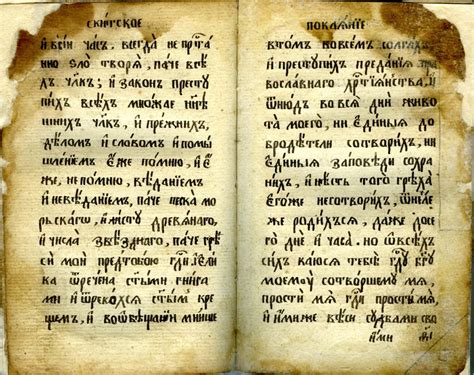 скитское
и всѧ̀ часъ, всегда не преста
нно зло творѧ, паче всѣ
хъ чл҃къ; и законъ престу
пихъ всѣхъ множае ннѣ
шнихъ чл҃къ, и прежнихъ,
дѣломъ и словомъ и помы
шленїемъ еже помню, и е
же, непомню, вѣданїемъ
и невѣданїемъ, паче песка мо
рьскагѡ, и листу древѧнаго,
и числа ѕвѣзднаго, паче грѣ
си мои предтобою гдⷭ҇и
ѿречена ст҃ыми книга
ми и ѿрекохсѧ ст҃ымъ кре
щемъ, и вообѣщанїи
покаѧнїе
втомъ повсемъ солгахъ
и преступихъ преданїѧ пра
вославнаго хрⷭ҇тїѧнства. и
ѿнюдъ во всѧ дни живо
та моего, ни единыѧ до
бродѣтели сотворихъ, ни
единыѧ заповѣди сохра
нихъ, и нѣсть того грѣха
егоже несотворихъ, ѿнелѣ
же родихсѧ, даже досе
го дне и часа. но ѡвсѣхъ
сихъ каюсѧ тебѣ гдⷭ҇у бг҃у
моемоу сотворшему мѧ,
прости мѧ гдⷭ҇и прости мѧ,
и ими же вѣси судбами сво
ими